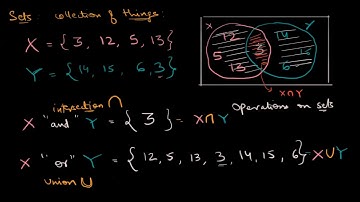 Sets: collection of things:
X = { 3, 12, 5, 13 }
Y = { 14, 15, 6, 3 }
X Y
12 14
5 3 15
13 6
X∩Y
intersection ∩
Operations on sets
X "and" Y = { 3 } = X∩Y
X "or" Y = { 12, 5, 13, 3, 14, 15, 6 } = X∪Y
union ∪